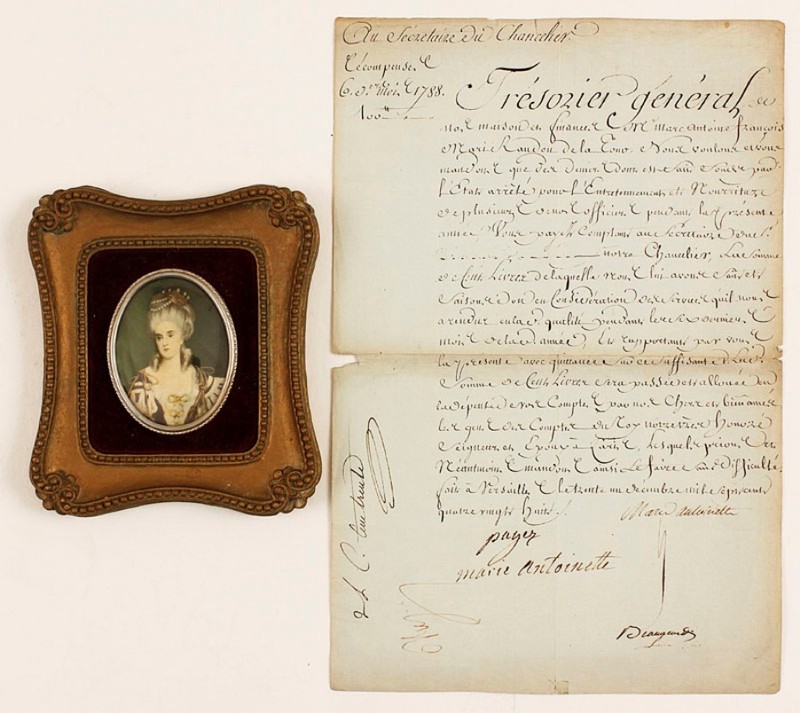 Au Sécretaire du Chancelier.
Récompense
6 ders mois 1788.
100
Trésorier général de
nos maison et finances Me Marc Antoine François
Marie Randon de la Tour Nous voulons et vous
mandons que des deniers dont est fait fonds par
l'Etat arrêté pour l'Entretennement et Nourriture
de plusieurs de nos officiers pendant la présente
année Vous payez Comptant au Secretaire
notre Chancelier, La Somme
de Cent Livres de laquelle nous lui avons fait et
faisons don en Considération des services qu'il nous
a rendu en lad. qualité pendant les six derniers
mois de lad. année, Et rapportant par vous
la présente avec quittance sur ce suffisante Lad.
Somme de Cent Livres sera passée et allouée en
la dépense de vos Comptes par nos Chers et bien amés
les gens des Comptes du Roy notre très Honoré
Seigneur et Epoux à Paris, lesquels prions et
Néantmoins mandons ainsi le faire sans difficulté.
fait à Versailles le trente un décembre mil sept cent
quatre vingt huit.
Marie antoinette
payez
marie antoinette
Beaugeard